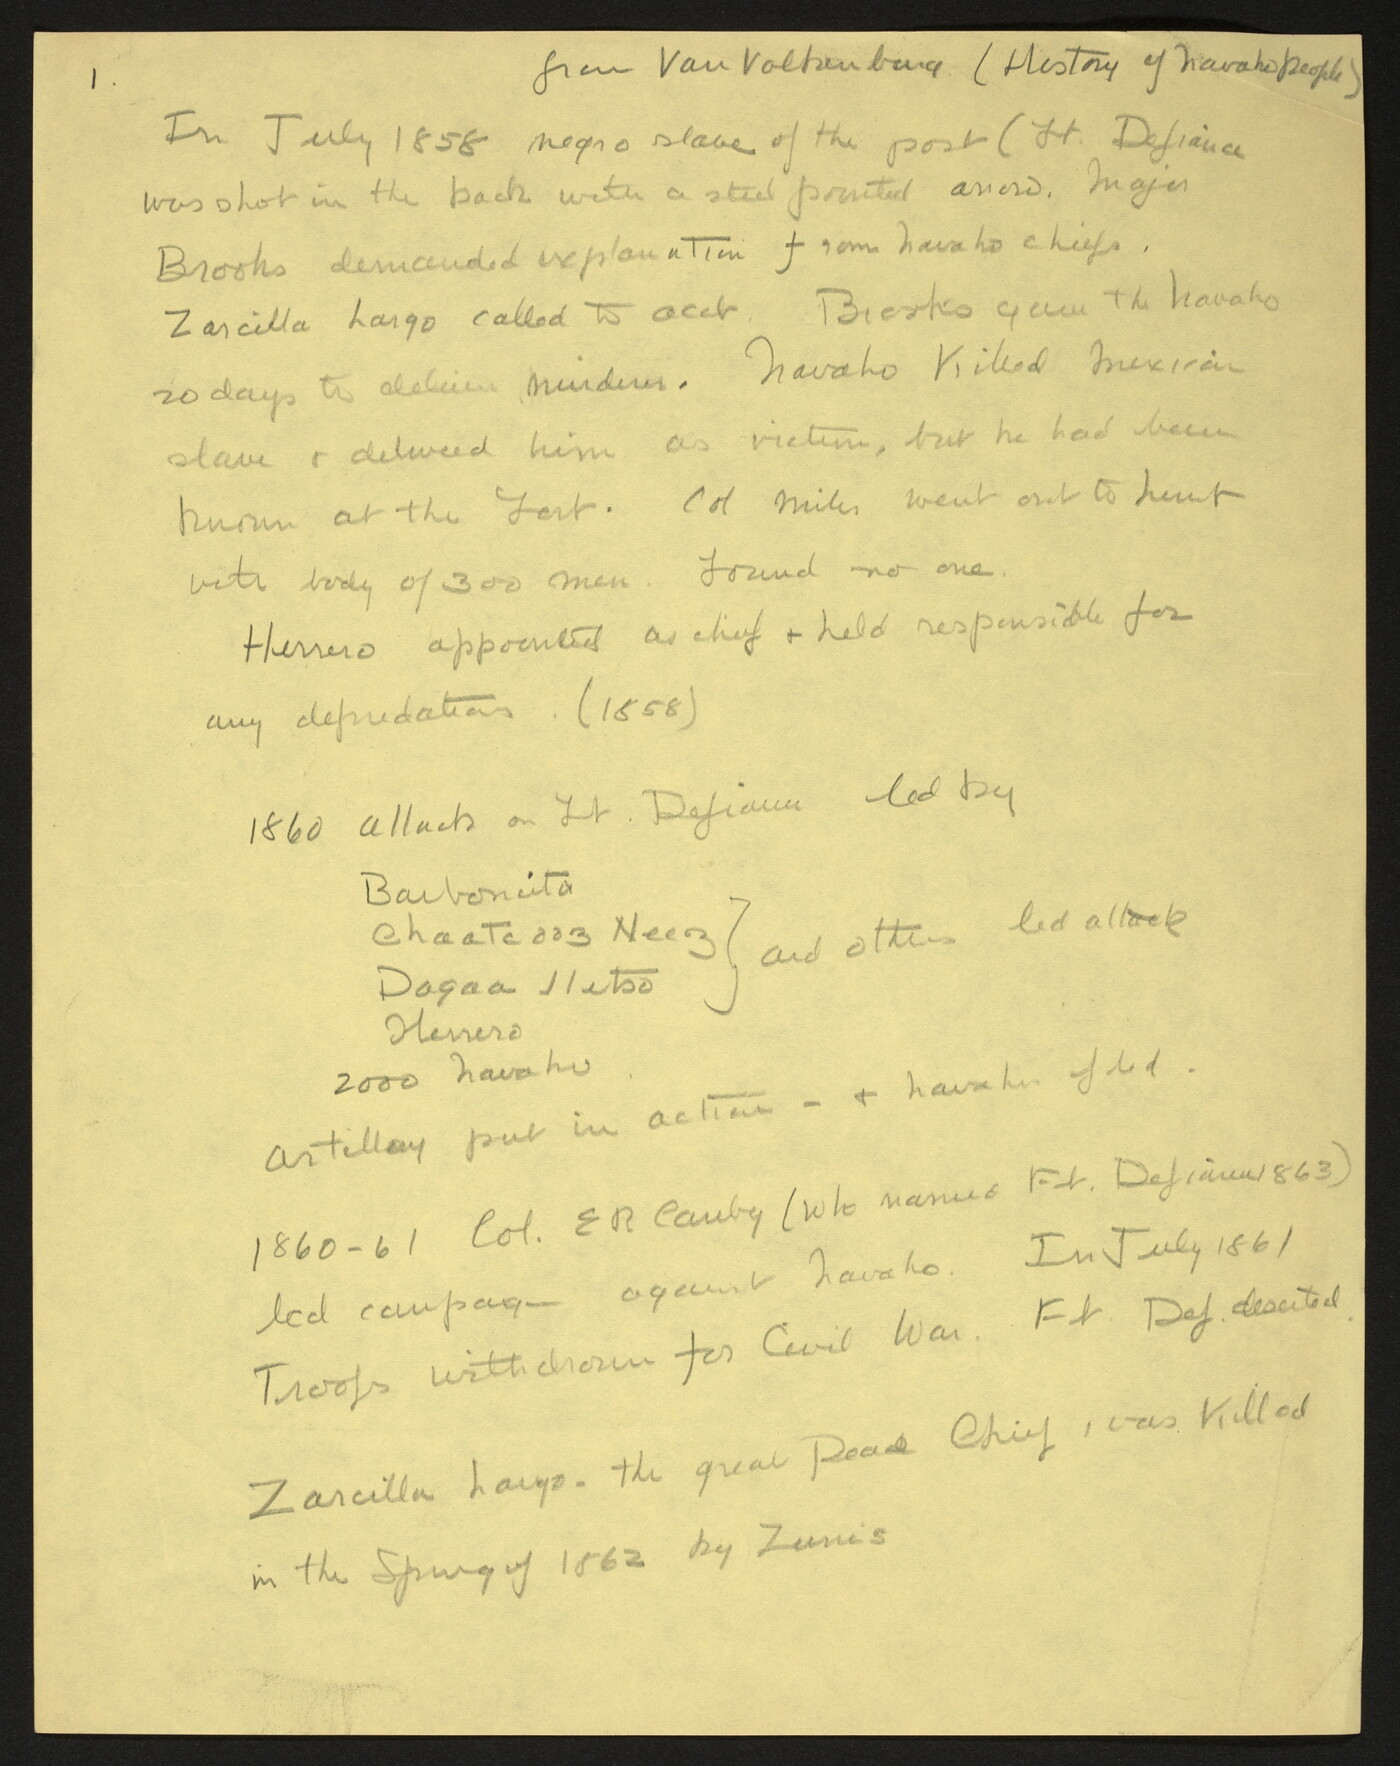 1.
from Van Valkenburg (History of Navaho People)
In July 1858 negro slave of the post (Ft. Defiance
was shot in the back with a steel pointed arrow. Major
Brooks demanded explanation from Navaho chiefs.
Zarcilla Largo called to acct. Brooks gave the Navaho
20 days to deliver murderer. Navaho Killed Mexican
slave & delivered him as victim, but he had been
known at the Fort. Col Miles went out to hunt
with body of 300 men. Found no one.
Herrero appointed as chief & held responsible for
any depredations. (1858)
1860 attack on Ft. Defiance led by
Barboncito
Chaatc Neez
Dagaa
Herrero
} and others led attack
2000 Navaho.
Artillery put in action - & Navahos fled.
1860-61 Col. E R Canby (who named Ft. Defiance 1863)
led campaign against Navaho. In July 1861
Troops withdrawn for Civil War. Ft. Def. deserted.
Zarcilla Largo - the great Peace Chief, was Killed
in the Spring of 1862 by Zunis